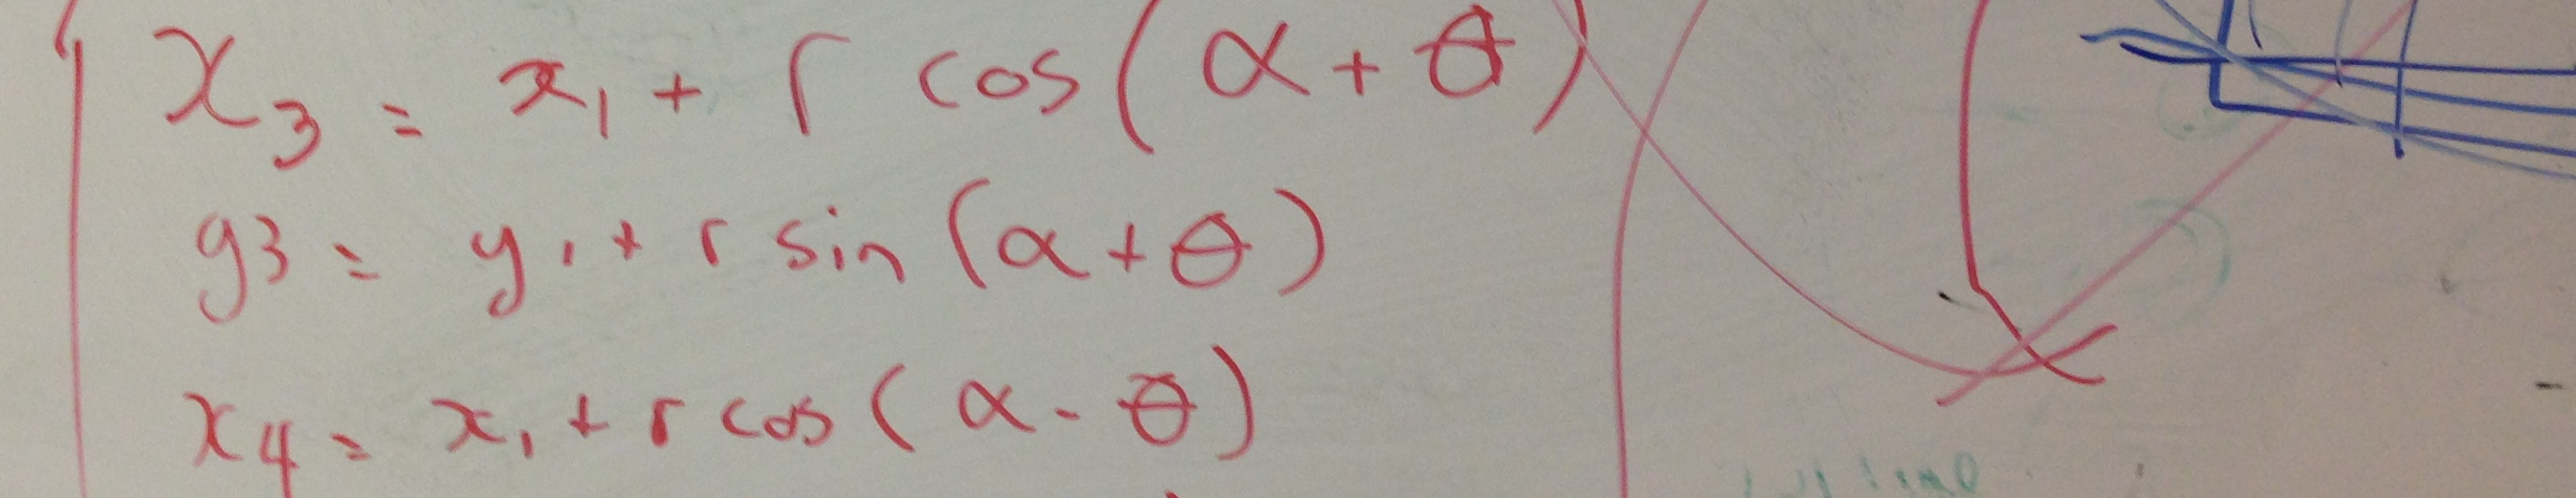 x₃ = x₁ + r cos(α + θ)
y3 = y₁ + r sin(α + θ)
x₄ = x₁ + r cos(α - θ)